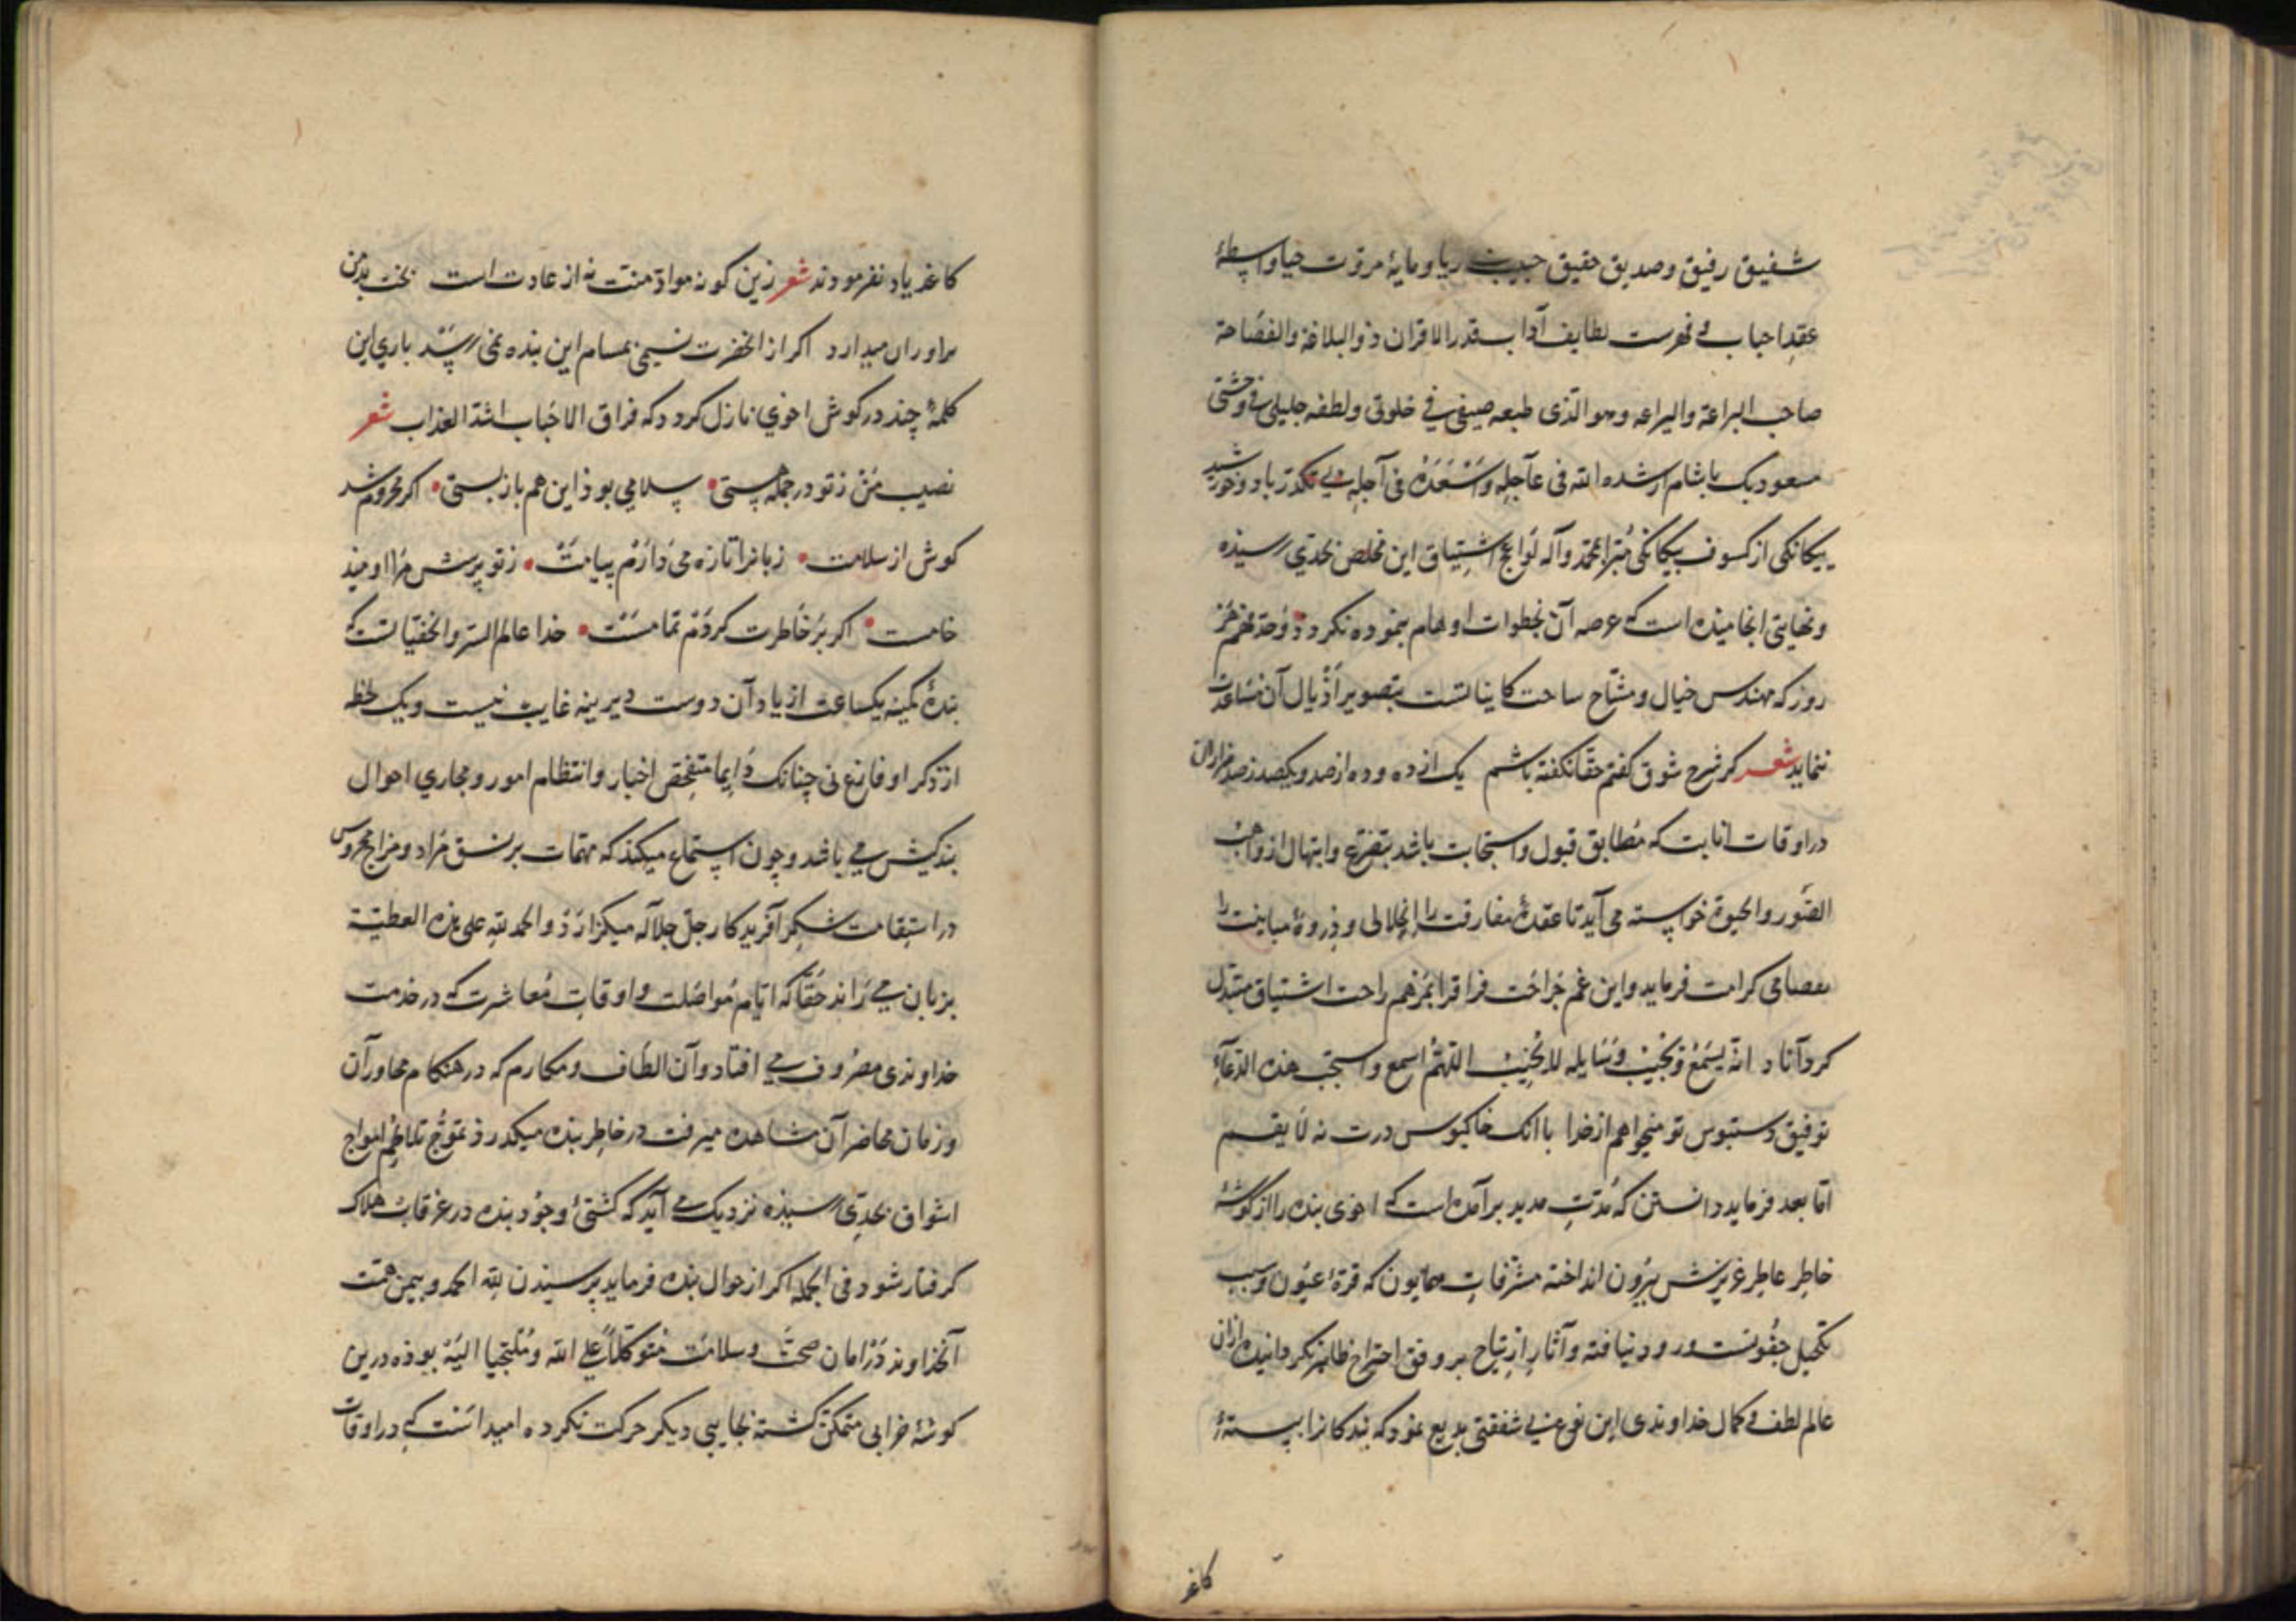 شفیق رفیق و صدیق حقیق حبیب بی ریا و مایهٔ مروّت حیا واسطهٔ
عقد احباب و فهرست لطایف آداب قدر الاقران ذو البلاغة والفصاحة
صاحب البراعة والیراعه وهو الذی طبعه صیفی فی خلوتی ولطفه جلیلی فی وحشتی
مسعود بک باشام ارشده الله فی عآجله وَاَسْعَدَهُ فی آجله بی تکدر باد و خورشید
یکانکی از کسوف بیکانکی مُبرّا بمحمّد وآله لَواعج اشتیاق این مخلص بحدّی رسیذه
و نهایتی انجامیذه است که عرصه آن بخطوات اوهام پیموده نکردد
روز که مهندس خیال و مسّاح ساحت کایناتست بتصویر اذْیال آن مساعدت
ننماید شعر کر شرح شوق کفتم حقّا نکفته باشم یک از ده و ده از صد و یکصد ز صد هزاران
در اوقات انابت که مُطابق قبول و استجابت باشد بتضرّع و ابتهال از واهب
الصُّور والحیوة خواسته می آید تا عقدهٔ مفارقت را اِنحلالی و ذِروهٔ مباینت را
انفصامی کرامت فرماید و این غم جَراحَت فراق را بمَرهم راحت اشتیاق مبتدل
کرداناد انّه یسَمَعُ وَیُجیبُ وَسَایله لا یُخیّبُ اللّهمّ اسمع واستجب هذه الدّعآءَ
توفیق دستبوس تو میخواهم از خدا با انک خاکبوس درت نه لایقم
امّا بعد فرماید دانستن که مُدّتِ مدید برآمده است که اخوی بنده را از کوشهٔ
خاطِر عاطِر عزیزش بیرُون انداخته مشرّفاتِ همایون که قرّهٔ عیُون و سبب
تکحیل جفُونست ورود نیافته و آثارِ اِرتیاح بر وفق اجتراح ظاهر نکردانیده از ان
عالم لطف و کمال خداوندی این نوع بی شفقتی بدیع نمود که بندکانرا ببستهٔ
کاغذ
کاغذ یاد نفرمودند شعر زین کونه مواد منّت نه از عادت است بخت بد من
براوران میدارد اکر از انحضرت نسیمی بمسام این بنده نمی رسَد باری این
کلمهٔ چند در کوش اخوی نازل کردد که فراق الاحباب اشدّ العذاب شعر
نصیب مَنْ ز تو در جمله هستی • سلامی بوذ این هم باز بستی • اکر محروم شد
کوش از سلامت • زبانرا تازه می دارَم بپیامت • ز تو پرسش مرا اومیذ
خامست • اکر بر خاطرت کردم تمامست • خدا عالم السّر والخفیّاتست که
بندهٔ کمینه یکساعت از یاد آن دوست دیرینه غایب نیست و یک لحظه
از ذکر او فارغ نی چنانک دَایما متفحّص اخبار و انتظام امور و مجاری احوال
بندکیش می باشد و چون استماع میکند که مهمّات بر نسق مُراد و مزاج محروس
در استقامت شکر آفریدکار جلّ جلاله میکزارَد و الحمد للهِ علی هذه العطیّة
بر زبان می رَاند حقّا که ایّام مُواصَلت و اوقات مُعاشرت که در خدمت
خداوندی مصرُوف می افتاد و آن الطاف و مکارم که در هنکام محاورآن
و زمان محاضرآن مشاهده میرفت در خاطِر بنده میکدرد ز تموّجِ تلاطُم امواج
اشواق بحدّی رسیذه نزدیک می آید که کشتیٔ وجُود بنده در غرقاب هلاک
کرفتار شود فی الجمله اکر از حوال بنده فرماید پرسیدن لله الحمد و بیمن همّت
آنخداوند دَر امان صحّت و سلامَت متوکّلاً علی الله و مُلتجیا الیَه بوذه درین
کوشهٔ خرابی متمکّن کشته بجایی دیکر حرکت نکرده امید انسَت که در اوقات